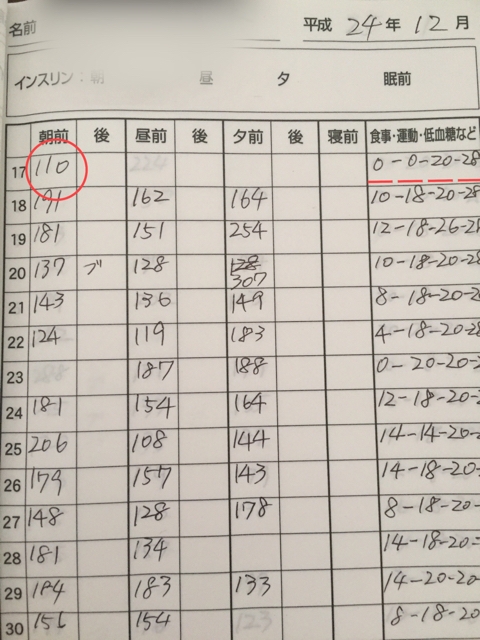 名前 平成 24 年 12 月
インスリン:朝 昼 夕 眠前
朝前 後 昼前 後 夕前 後 寝前 食事・運動・低血糖など
17 110 0-0-20-28
18 191 162 164 10-18-20-28
19 181 151 254 12-18-26-28
20 137 ブ 128 128 10-18-20-28
307
21 143 136 149 8-18-20-2
22 124 119 183 4-18-20-28
23 187 188 0-20-20-2
24 181 154 164 12-18-20-2
25 206 108 144 14-14-20-
26 179 157 143 14-18-20-
27 148 128 178 8-18-20-
28 181 134 14-18-20-
29 184 183 133 14-20-20-
30 156 154 8-18-20